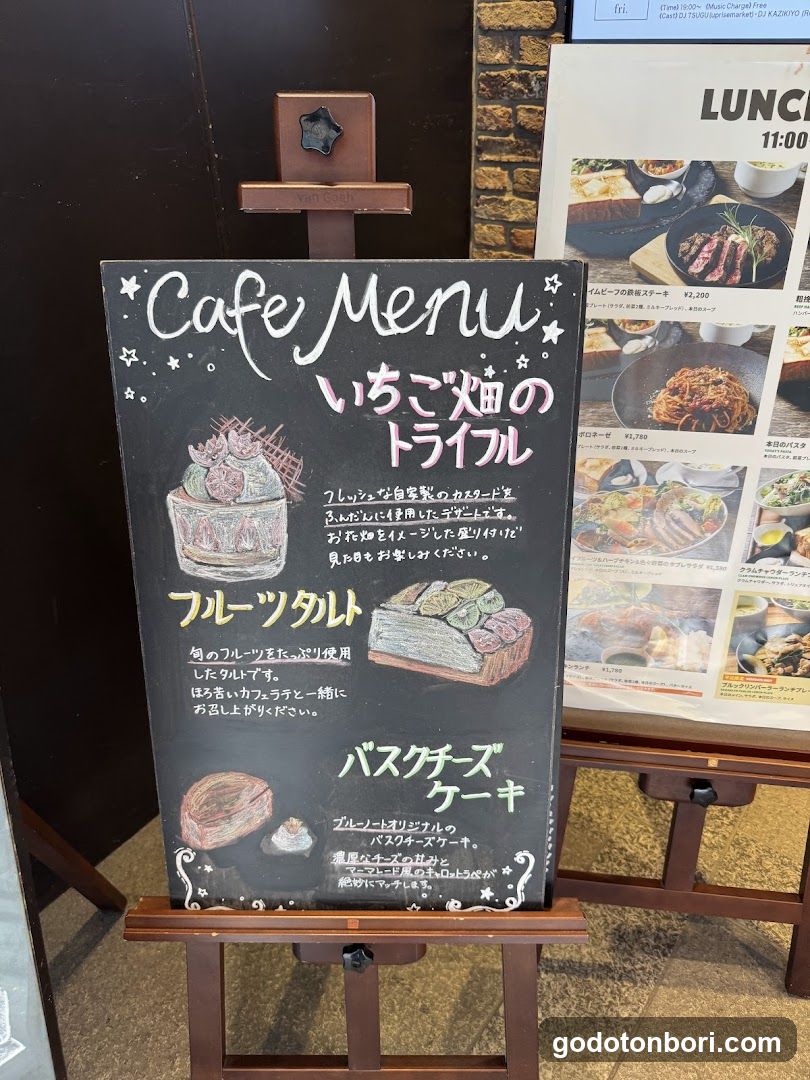 fri.
《Time》19:00〜 《Music Charge》Free
《Cast》DJ TSUGU(uprisemarket)・DJ KAZIKIYO
Van Gogh
Cafe Menu
いちご畑の
トライフル
フレッシュな自家製のカスタードを
ふんだんに使用したデザートです。
お花畑をイメージした盛り付けで
見た目もお楽しみください。
フルーツタルト
旬のフルーツをたっぷり使用
したタルトです。
ほろ苦いカフェラテと一緒に
お召し上がりください。
バスクチーズ
ケーキ
ブルーノートオリジナルの
バスクチーズケーキ。
濃厚なチーズの甘みと
マーマレード風のキャロットラペが
絶妙にマッチします。
LUNC
11:00
イムビーフの鉄板ステーキ ¥2,200
プレート（サラダ、前菜2種、ミルキーブレッド）、本日のスープ
ボロネーゼ ¥1,780
本日のパスタ
クラムチャウダーランチ
キンランチ ¥1,780
ブルックリンパーラーランチプレ
godotonbori.com